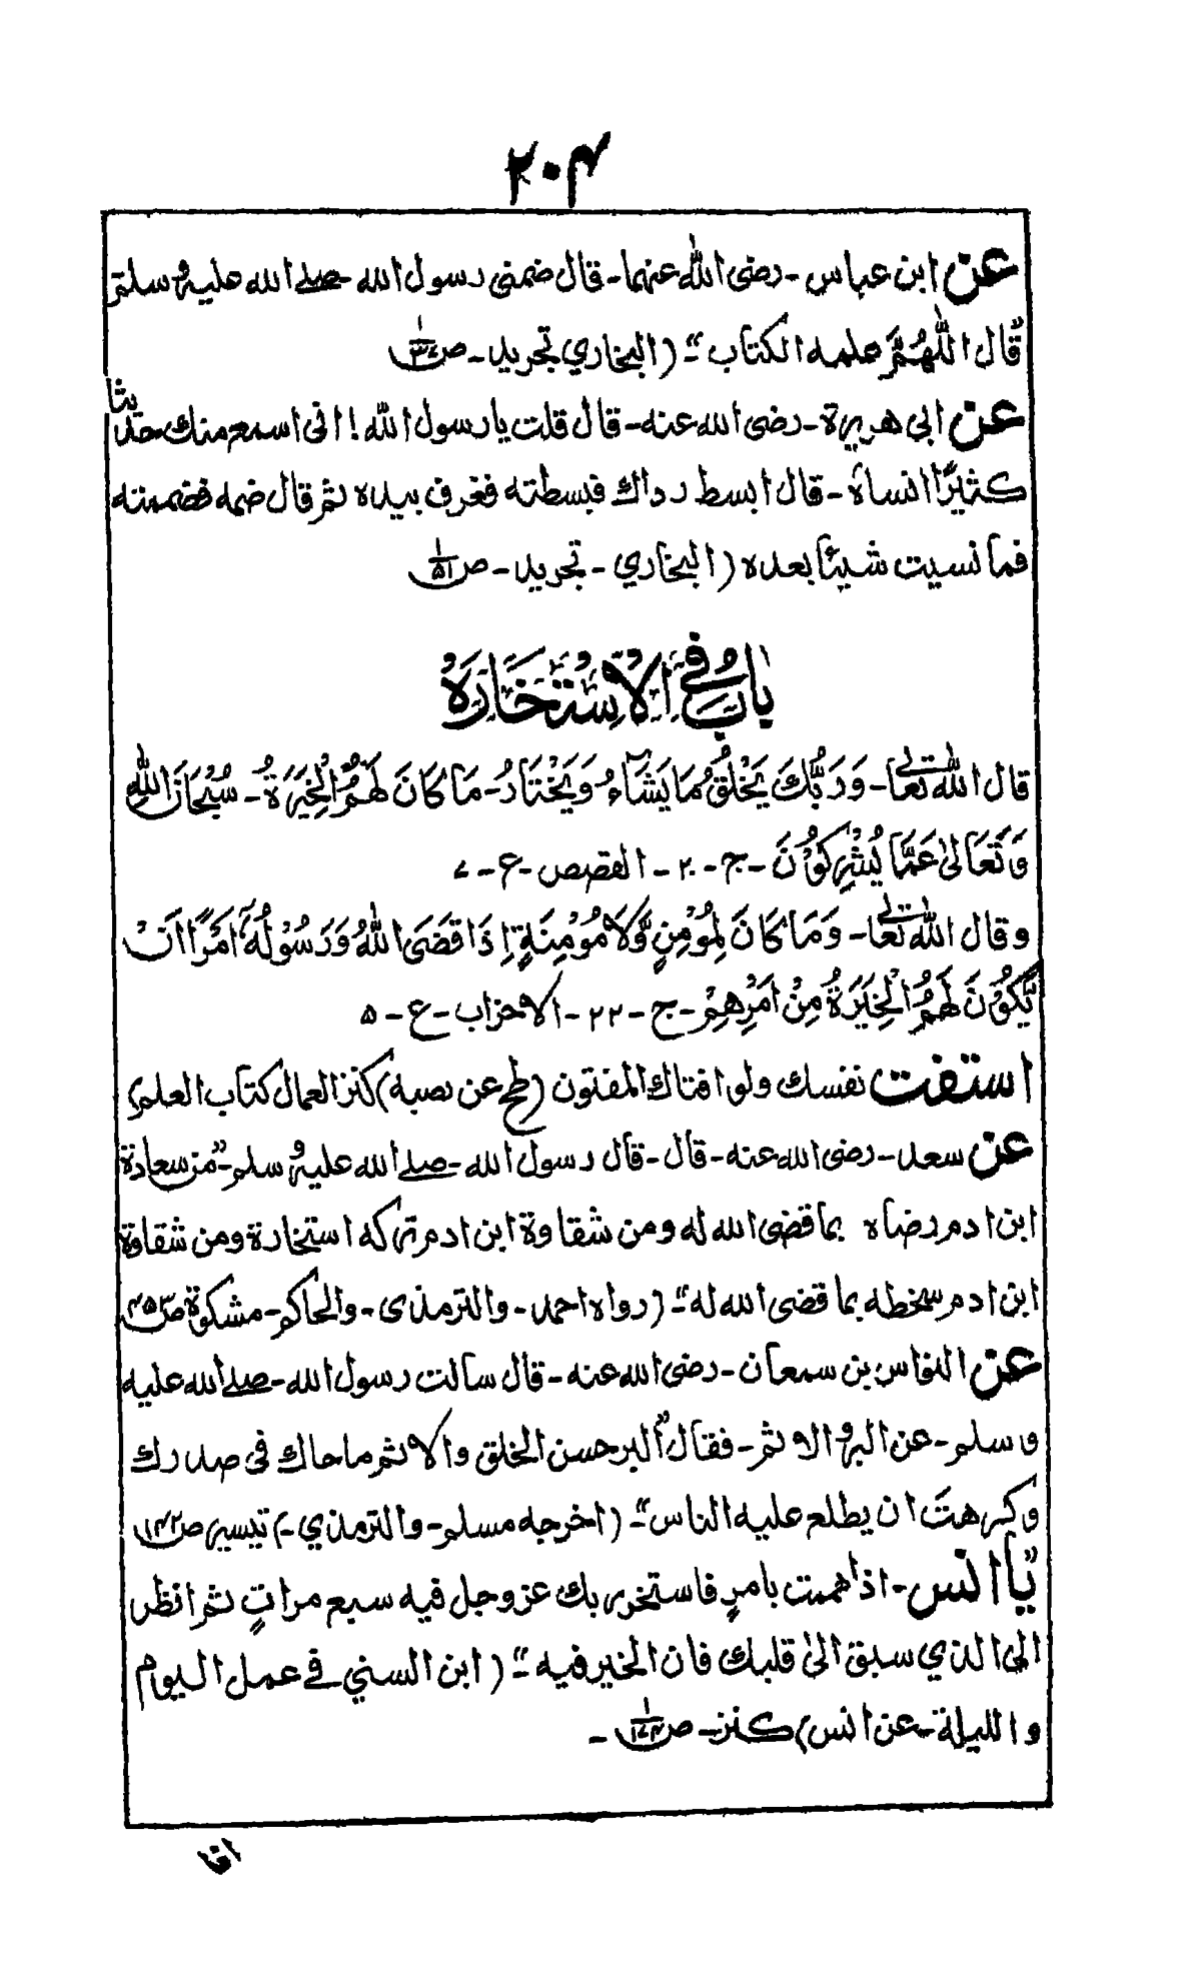 ۲۰۴
عن ابن عباس - رضی اللّٰه عنهما - قال ضمنی رسول الله - صلے الله علیه و سلم
و قال اللّٰهُمَّ علمه الكتاب" - (البخاري تجريد - ص
عن ابی هريرة - رضی الله عنه - قال قلت يا رسول اللّٰه ! انی اسمع منك حديثا
كثيرًا انساهٗ - قال ابسط رداك فبسطته فغرف بيده ثم قال ضمه فضممته
فما نسيت شيئًا بعده (البخاري - تجريد - ص ۱/۵۱
بابٌ فِي الْاِسْتِخَارَةِ
قال اللّٰه تعالٰى - وَرَبُّكَ يَخْلُقُ مَا يَشَآءُ وَيَخْتَارُ - مَا كَانَ لَهُمُ الْخِيَرَةُ - سُبْحَانَ اللّٰهِ
وَتَعَالىٰ عَمَّا يُشْرِكُوْنَ - ج - ۲۰ - القصص - ع - ۷
وقال اللّٰه تعالٰى - وَمَا كَانَ لِمُؤْمِنٍ وَّلَا مُؤْمِنَةٍ اِذَا قَضَى اللّٰهُ وَرَسُوْلُهٗٓ اَمْرًا اَنْ
يَّكُوْنَ لَهُمُ الْخِيَرَةُ مِنْ اَمْرِهِمْ - ج - ۲۲ - الاحزاب - ع - ۵
استفت نفسك ولو افتاك المفتون (طح عن كنز العمال كتاب العلم)
عن سعد - رضی الله عنه - قال - قال رسول الله - صلے الله علیه و سلم - "من سعادة
ابن ادم رضاه بما قضى الله له ومن شقاوة ابن ادم تركه استخارة ومن شقاوة
ابن ادم سخطه بما قضى الله له" - (رواه احمد - والترمذى - والحاكم - مشكوة ص ۴۵۳
عن النواس بن سمعان - رضی الله عنه - قال سالت رسول الله - صلے الله علیه
وسلم - عن البر و الاثم - فقال "البر حسن الخلق والاثم ما حاك فى صدرك
وكرهتَ ان يطلع عليه الناس" - (اخرجه مسلم - والترمذي -) تيسير ص ۱۴۲
"يا انس - اذا هممت بامرٍ فاستخر ربك عزوجل فيه سبع مراتٍ ثم انظر
الى الذي سبق الىٰ قلبك فان الخير فيه" - (ابن السني فے عمل اليوم
و الليلة - عن انس) كنز - ص -
افا